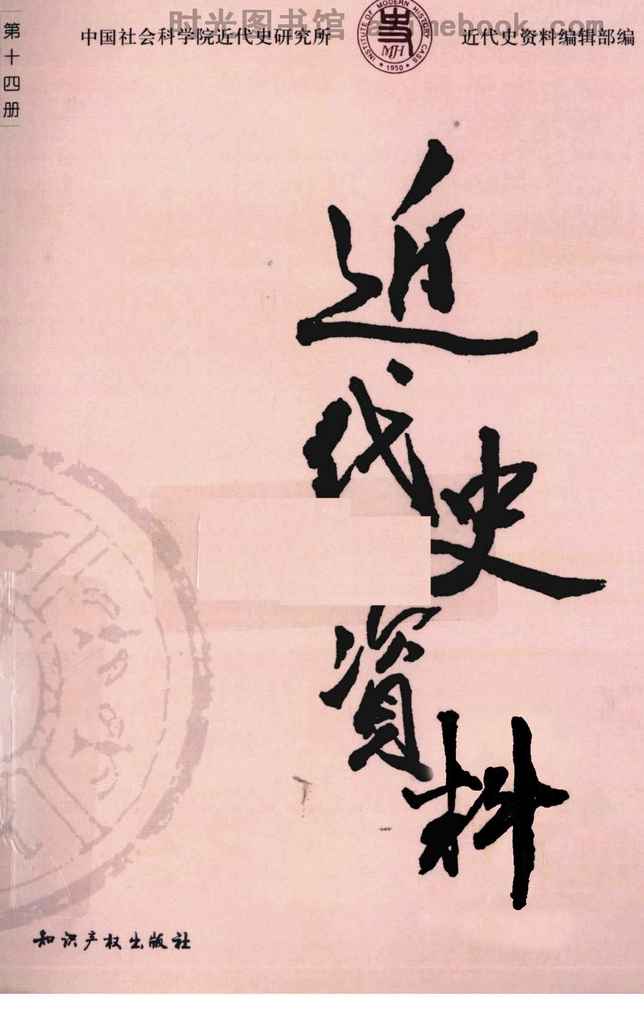 第十四册
时光图书馆
中国社会科学院近代史研究所
INSTITUTE OF MODERN HISTORY CASS
史
MH
1950
近代史资料编辑部编
近代史資料
知识产权出版社